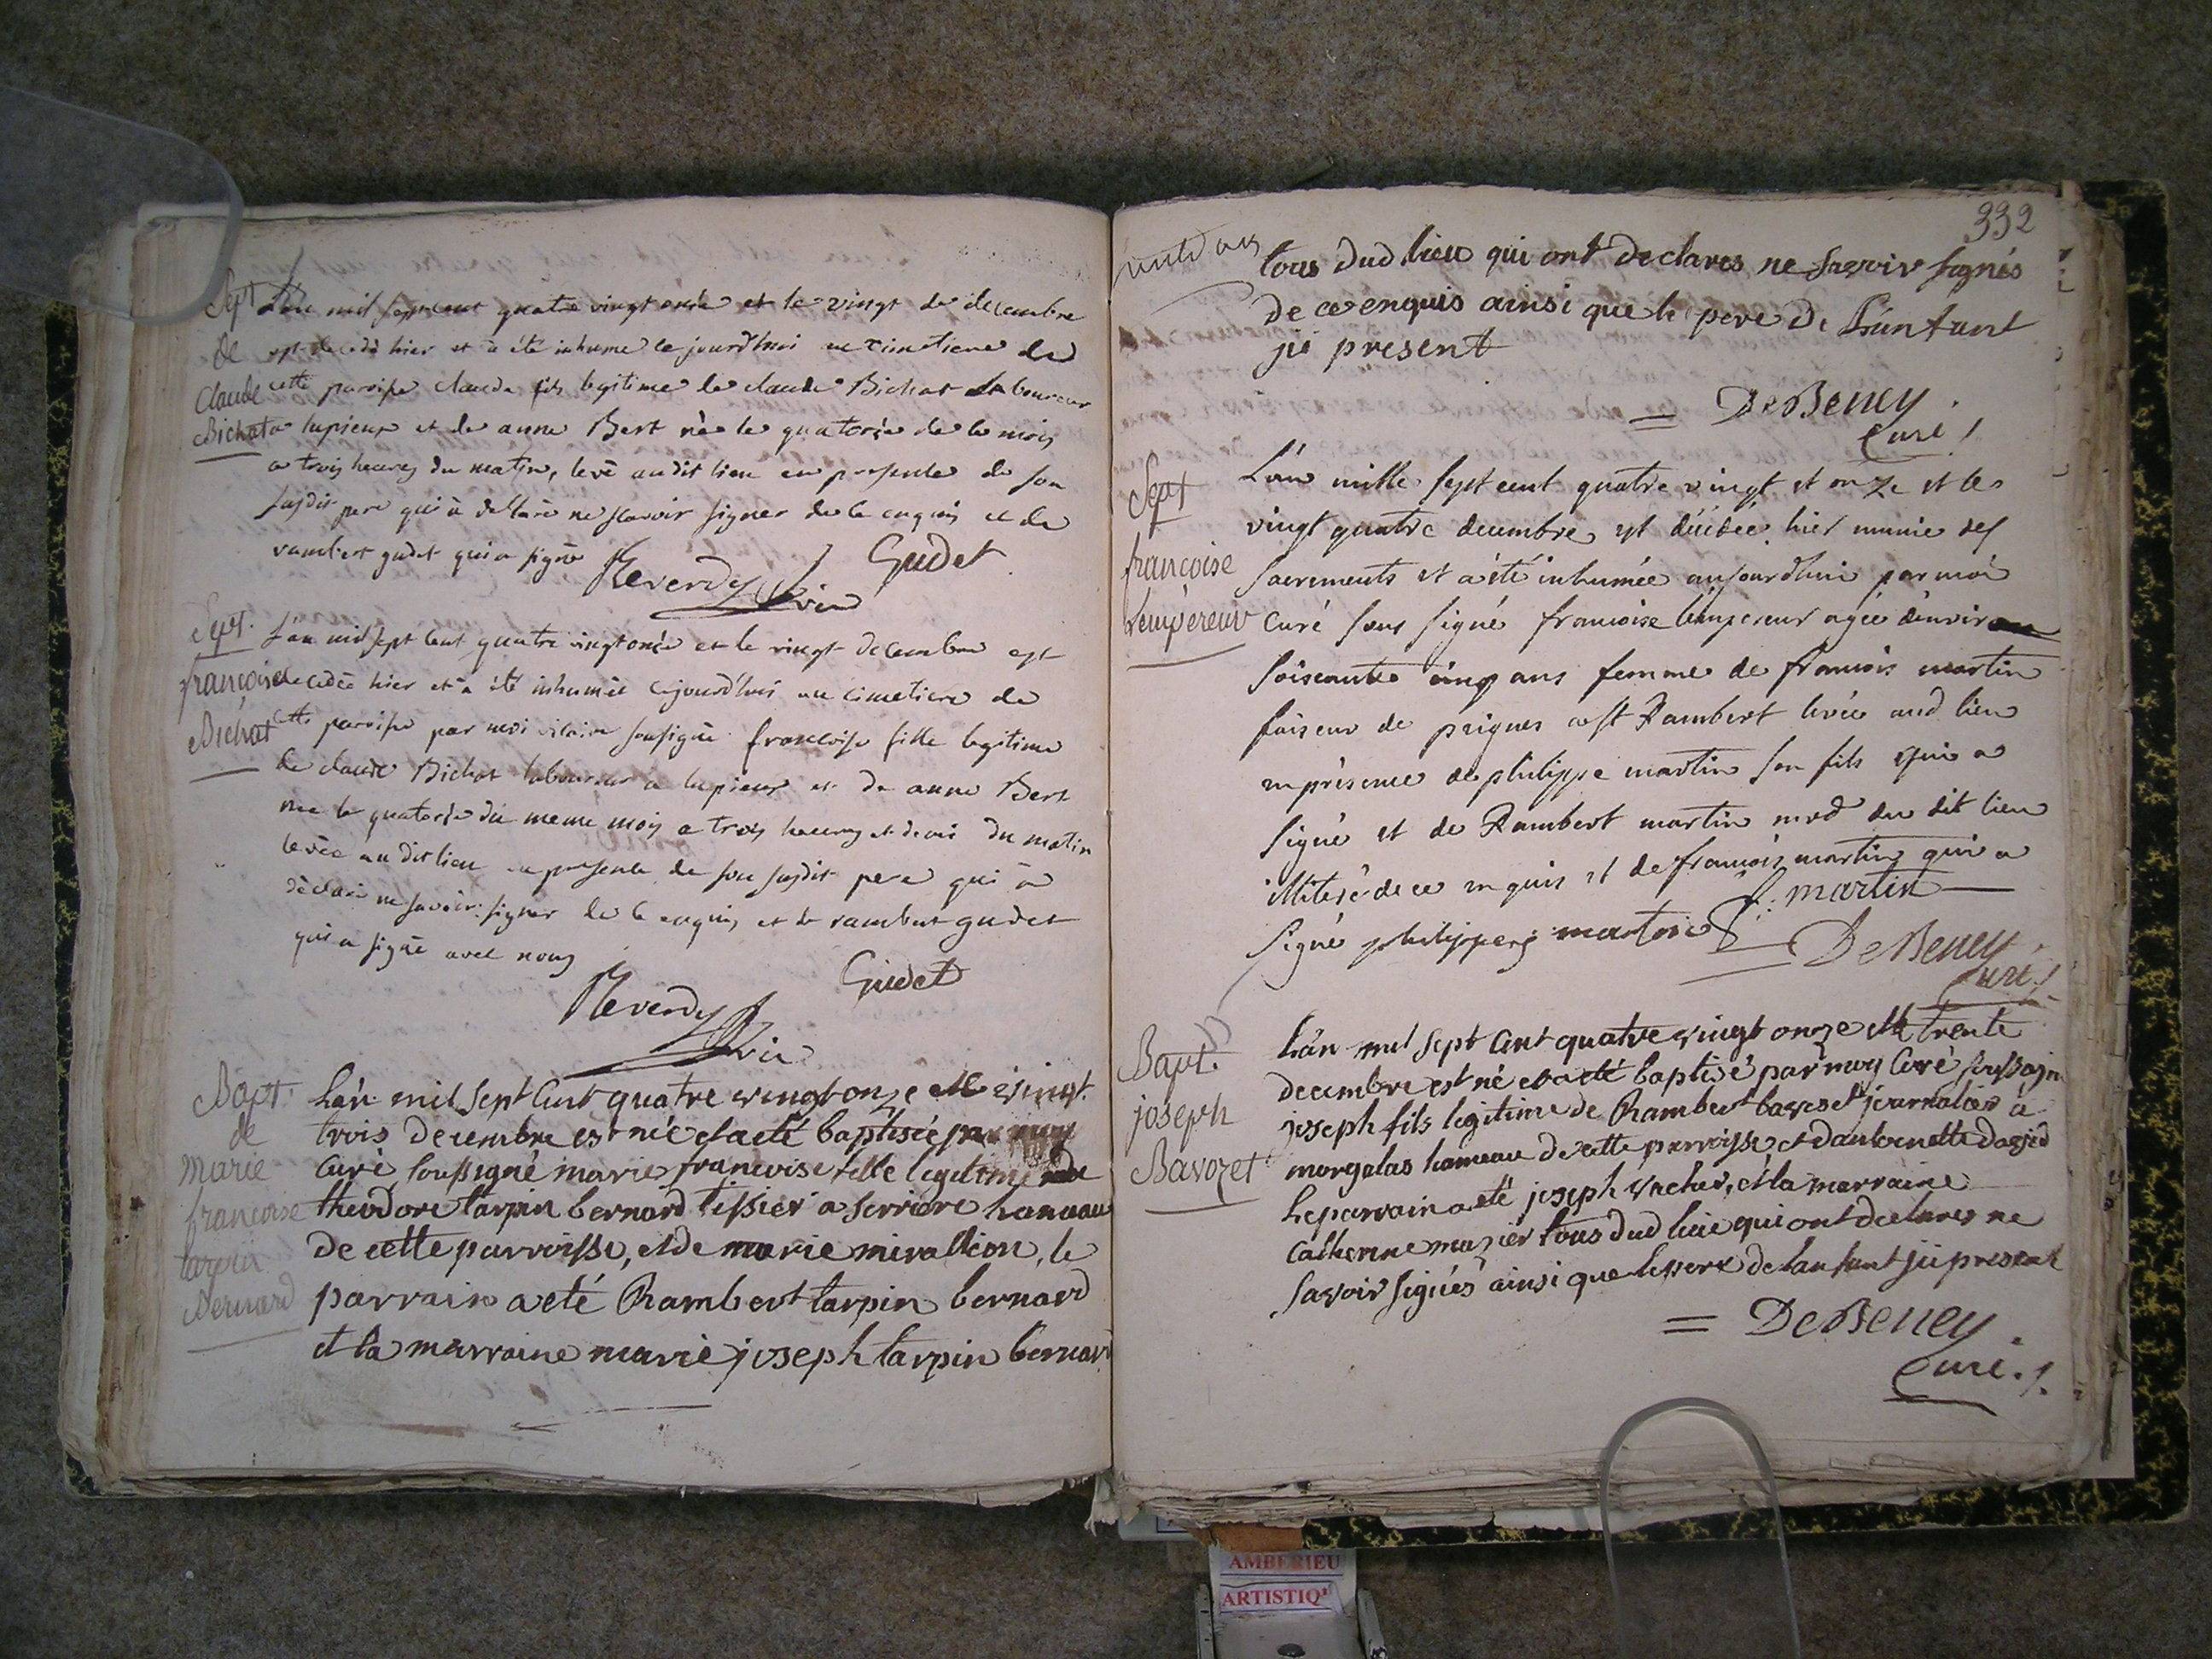 Sept
de
Claude
Bichat
L'an mil sept cent quatre vingt onze et le vingt de decembre
est decedé hier et à été inhumé ce jourd'hui au cimetiere de
cette paroisse claude fils legitime de claude Bichat laboureur
a lupieux et de anne Bert né le quatorze de ce mois
a trois heures du matin, levé audit lieu en presence de son
susdit pere qui à declaré ne sçavoir signer de ce enquis et de
rambert gudet qui a signé
Reverdy vic
Gudet
Sept.
françoise
Bichat
L'an mil sept cent quatre vingt onze et le vingt decembre est
decedée hier et à été inhumée cejourd'hui au cimetiere de
cette paroisse par moi vicaire soussigné françoise fille legitime
de claude Bichat laboureur a lupieux et de anne Bert
née le quatorze du meme mois a trois heures et demi du matin
levée au dit lieu en presence de son susdit pere qui à
déclaré ne savoir signer de ce enquis et de rambert gudet
qui a signé avec nous
Gudet
Reverdy vic
Bapt.
de
marie
francoise
tarpin
Bernard
L'an mil sept cent quatre vingt onze et le vingt
trois decembre est née et a eté baptisée par moy
curé soussigné marie francoise fille legitime de
theodore tarpin bernard tissier a serriere hameau
de cette parroisse, et de marie mirallion, le
parrain a eté Rambert tarpin bernard
et la marraine marie joseph tarpin bernard
332
tous dud lieu qui ont declarés ne savoir signés
de ce enquis ainsi que le pere de L'enfant
ji present
= DeBeney.
Curé !
Sept
francoise
Lempereur
L'an mille sept cent quatre vingt et onze et les
vingt quatre decembre est décédée hier munie des
sacrements et a été inhumée aujourdhui par moi
curé sous signé francoise lempereur agée d'environ
soiscante cinq ans femme de francois martin
faiseur de peignes a st Rambert levée aud lieu
en présence de philippe martin son fils qui a
signé et de Rambert martin mrd du dit lieu
illiteré de ce enquis et de francois martin qui a
signé philippe martin f: martin
DeBeney.
Curé !
Bapt.
joseph
Bavozet
L'an mil sept cent quatre vingt onze et le trente
decembre est né et a eté baptisé par moy Curé soussigné
joseph fils legitime de Rambert bavoset journalier à
morgelas hameau de cette parroisse et d'antoinette
Le parrain a eté joseph vacher, et la marraine
catherine mazier tous dud lieu qui ont declarés ne
savoir signés ainsi que le pere de l'anfant ji present
= DeBeney.
Curé. !
AMBERIEU
ARTISTIQ